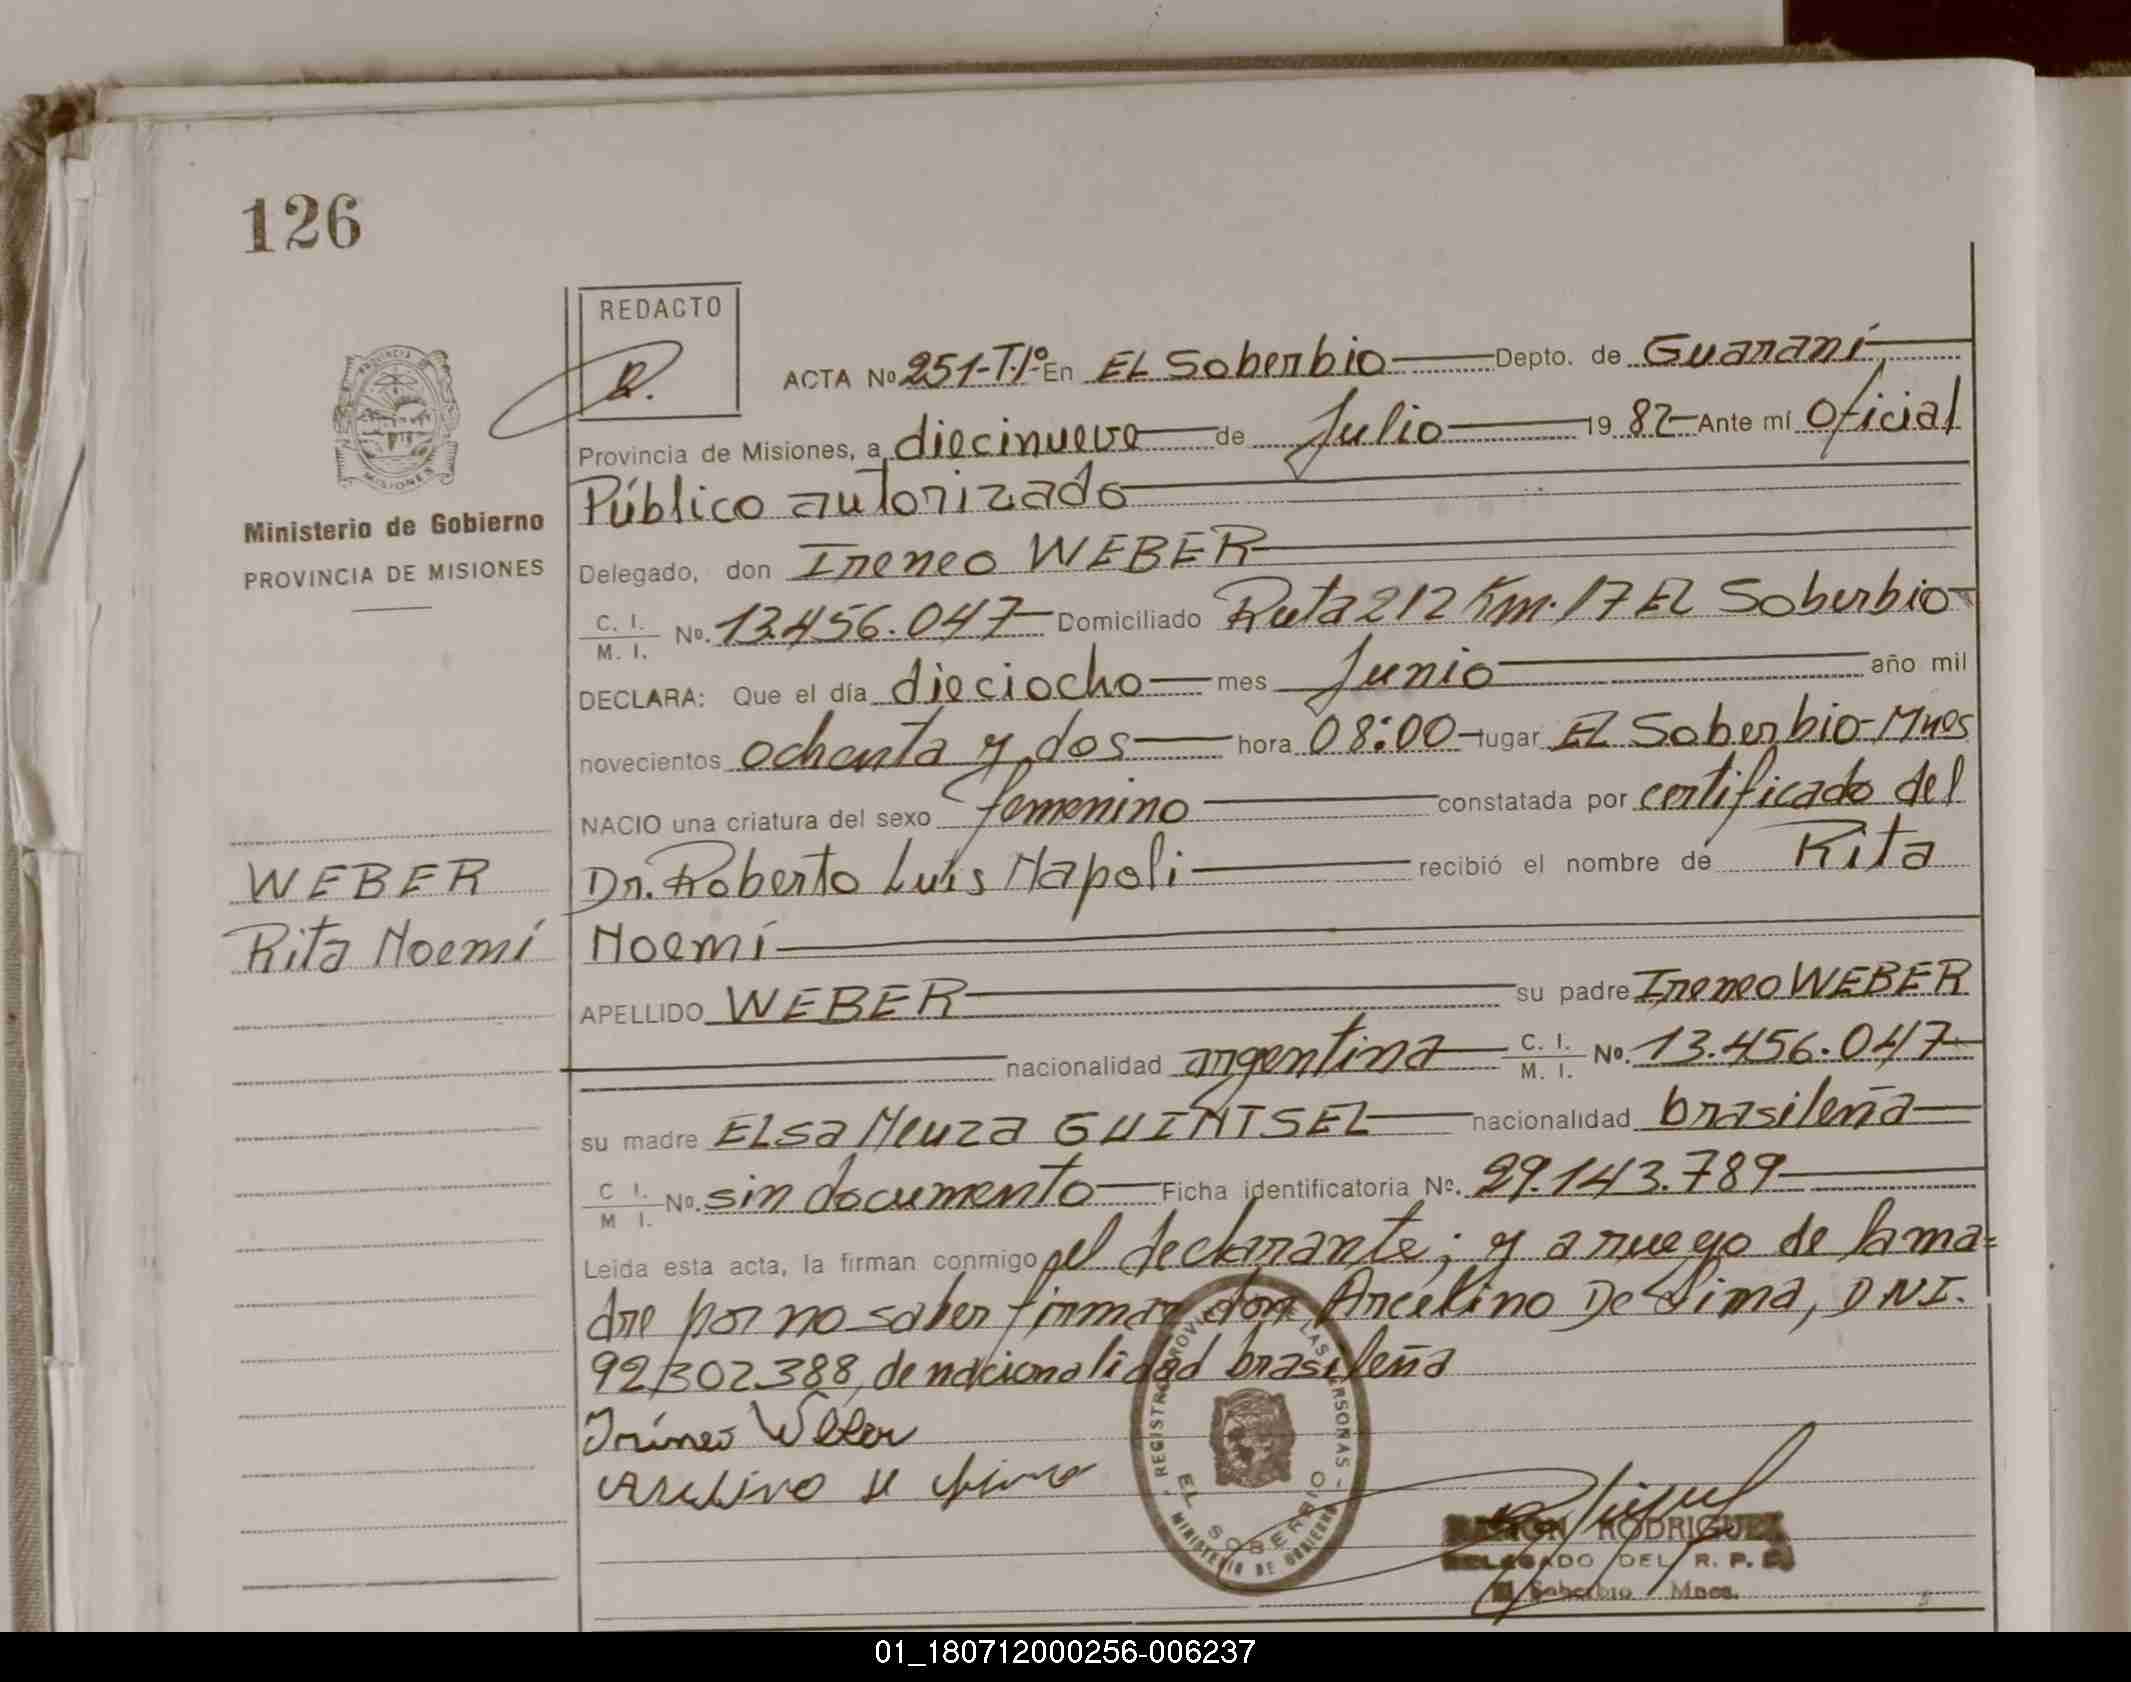 126
REDACTO
R.
PROVINCIA DE
MISIONES
Ministerio de Gobierno
PROVINCIA DE MISIONES
ACTA Nº 251-T.Iº En EL Soberbio Depto. de Guaraní
Provincia de Misiones, a diecinueve de Julio 19 82 Ante mí Oficial
Público autorizado
Delegado, don Ireneo WEBER
C. I. / M. I. Nº. 13.456.047 Domiciliado Ruta 212 Km. 17 El Soberbio
DECLARA: Que el día dieciocho mes Junio año mil
novecientos ochenta y dos hora 08:00 lugar El Soberbio-Mnes
NACIO una criatura del sexo femenino constatada por certificado del
WEBER
Dr. Roberto Luis Napoli recibió el nombre de Rita
Rita Noemí
Noemí
APELLIDO WEBER su padre Ireneo WEBER
nacionalidad argentina C. I. / M. I. Nº. 13.456.047
su madre ELsa Neuza GUINTSEL nacionalidad brasileña
C I. / M I. Nº. sin documento Ficha identificatoria Nº. 29.143.789
Leída esta acta, la firman conmigo el declarante; y a ruego de la ma=
dre por no saber firmar don Arcelino De Lima, DNI.
92.302.388, de nacionalidad brasileña
Irineo Weber
Arcelino de Lima
REGISTRO PROVINCIAL DE LAS PERSONAS
EL SOBERBIO
MINISTERIO DE GOBIERNO
RAMON RODRIGUEZ
DELEGADO DEL R. P. P.
El Soberbio Mnes.
01_180712000256-006237